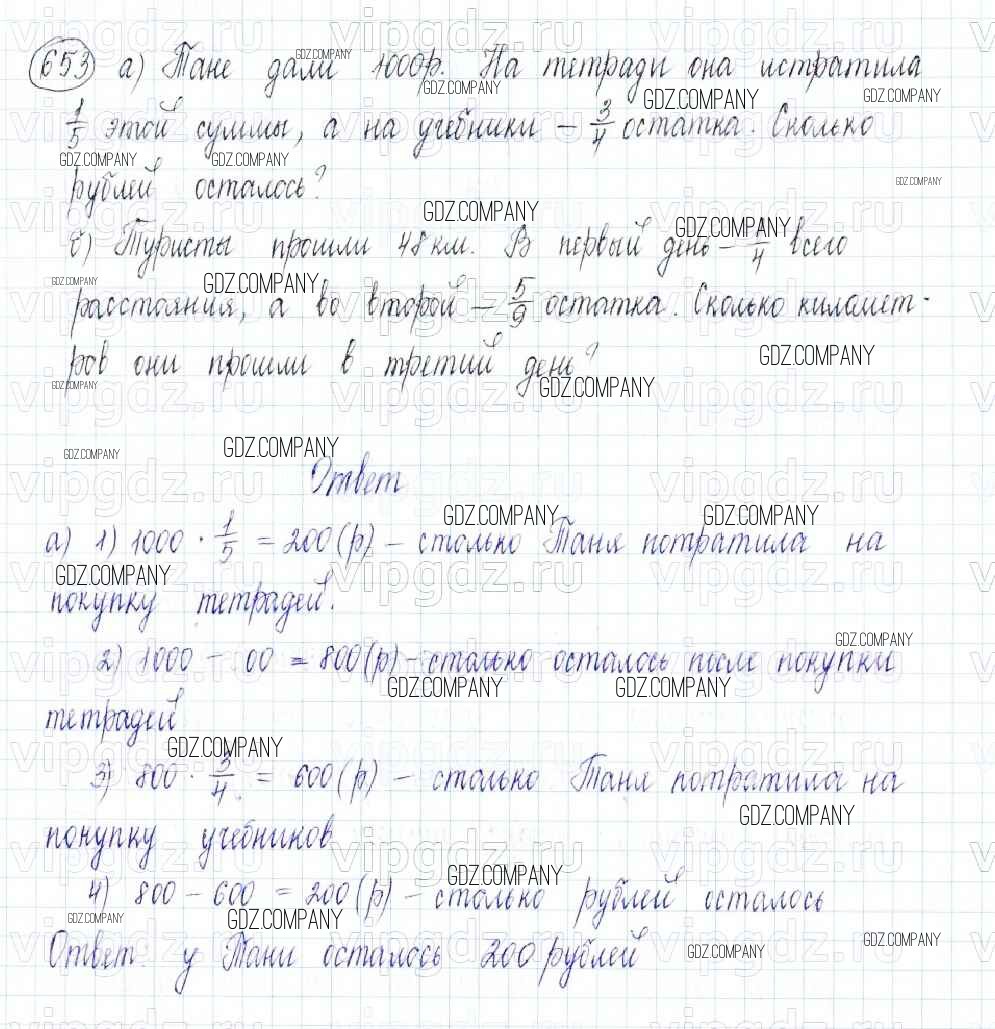 653 а) Тане дали 1000р. На тетради она истратила
1/5 этой суммы, а на учебники – 3/4 остатка. Сколько
рублей осталось?
б) Туристы прошли 48 км. В первый день – 1/4 всего
расстояния, а во второй – 5/9 остатка. Сколько километ-
ров они прошли в третий день?
Ответ
а) 1) 1000 · 1/5 = 200 (р) – столько Таня потратила на
покупку тетрадей.
2) 1000 – 00 = 800 (р) – столько осталось после покупки
тетрадей
3) 800 · 3/4 = 600 (р) – столько Таня потратила на
покупку учебников
4) 800 – 600 = 200 (р) – столько рублей осталось
Ответ: у Тани осталось 200 рублей
GDZ.COMPANY
vipgdz.ru